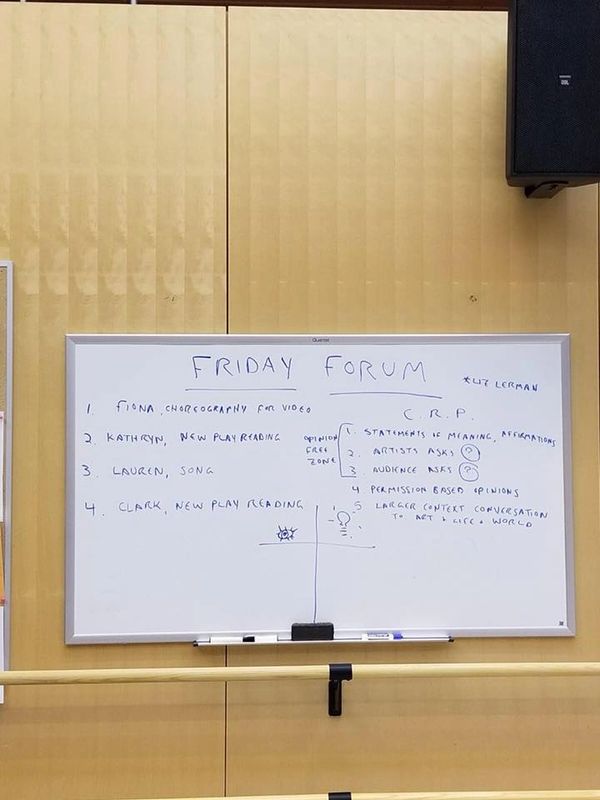 JBL
Quartet
FRIDAY FORUM
*LIZ LERMAN
C.R.P.
1. FIONA, CHOREOGRAPHY FOR VIDEO
2. KATHRYN, NEW PLAY READING
3. LAUREN, SONG
4. CLARK, NEW PLAY READING
OPINION
FREE
ZONE
1. STATEMENTS OF MEANING, AFFIRMATIONS
2. ARTISTS ASKS ?
3. AUDIENCE ASKS ?
4. PERMISSION BASED OPINIONS
5 LARGER CONTEXT CONVERSATION
TO ART + LIFE + WORLD